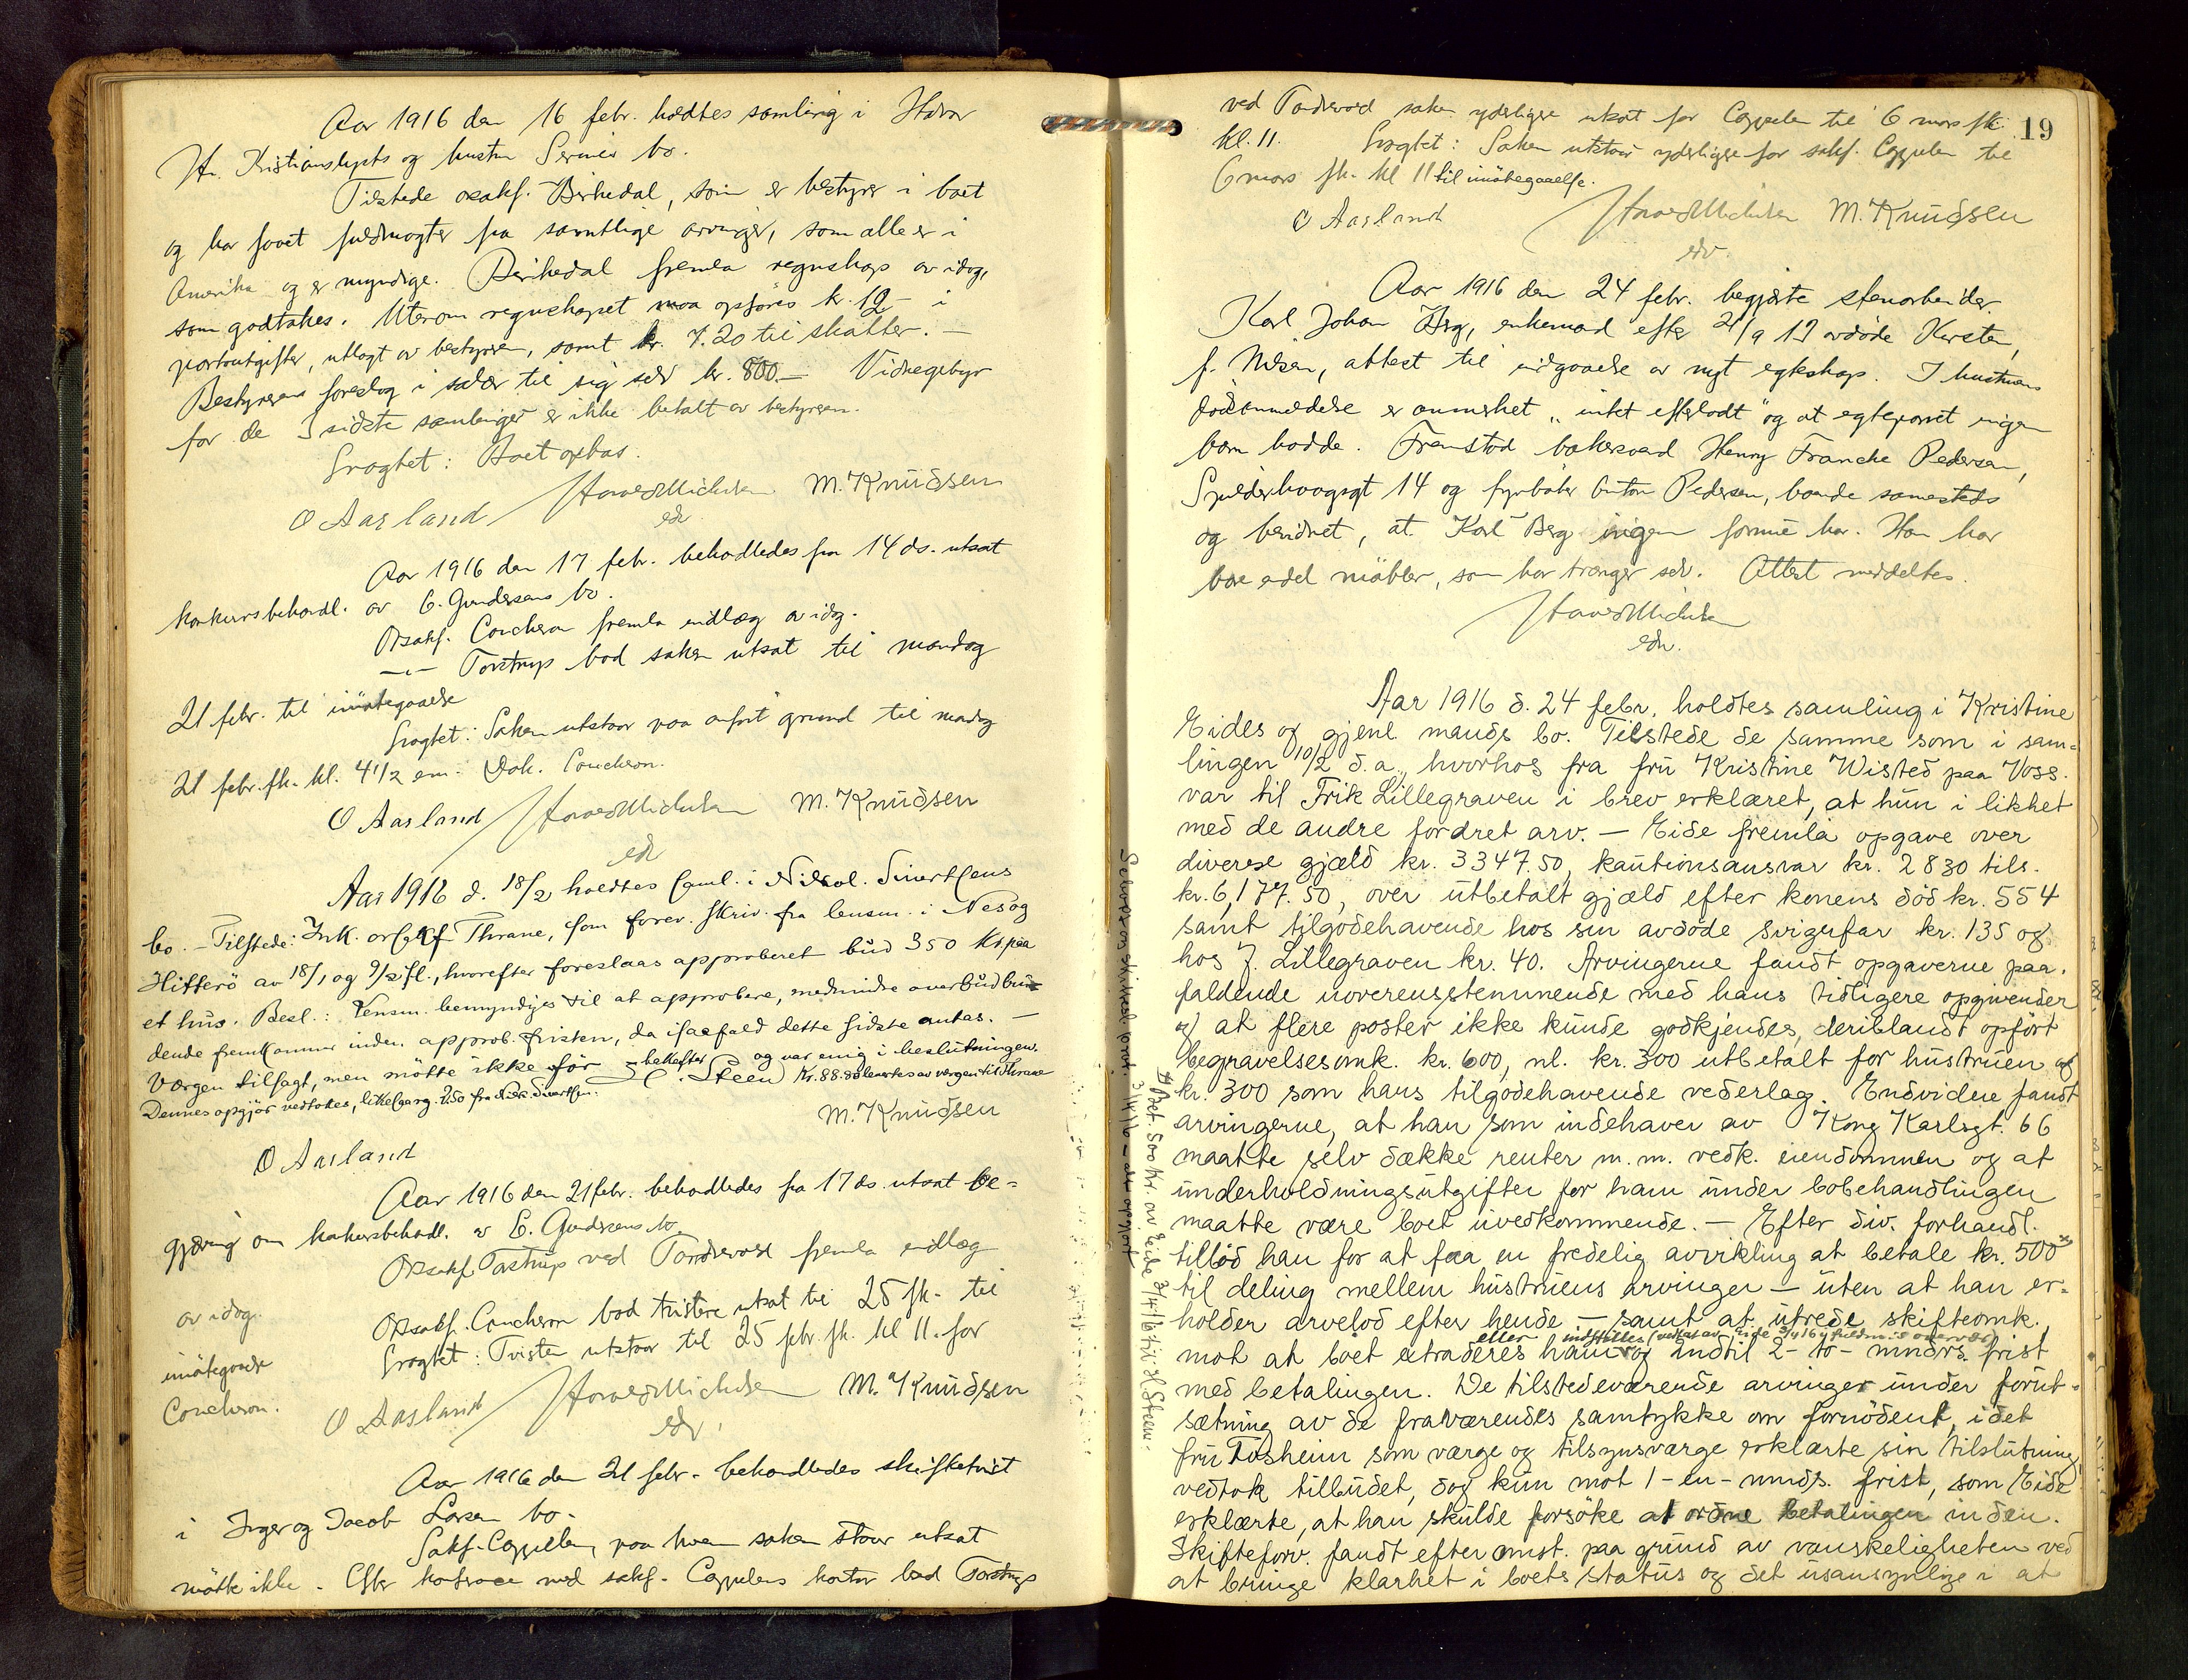 Aar 1916 den 16 febr. holdtes samling i
H. Kristianslysts og hustru bo.
Tilstede osakf. Birkedal, som er bestyrer i boet
og har faaet fuldmagter fra samtlige arvinger, som alle er i
Amerika og er myndige. Birkedal fremla regnskap av idag,
som godtakes. Utenom regnskapet maa opföres kr. 12 - i
portoutgifter, utlagt av bestyreren, samt kr. 7.20 til skatter. -
Bestyreren foreslog i salær til sig selv kr. 800.- Vidnegebyr
for de 3 sidste samlinger er ikke betalt av bestyreren.
Sragtet: Boet optas.
O Aasland M. Knudsen
Aar 1916 den 17 febr. behandledes fra 14 ds. utsat
konkursbehandl. av C. Gundersens bo.
Osakf. Coucheron fremla indlæg av idag.
-"- Tostrup bad saken utsat til mandag
21 febr. til imötegaaelse
Sragtet: Saken utstaar paa anfört grund til mandag
21 febr. fk. kl. 4 1/2 em. Coucheron.
O Aasland M. Knudsen
Aar 1916 d. 18/2 holdtes saml. i Nikol. Sivertsens
bo. - Tilstede: Ink. orsakf Thrane, som forev. skriv. fra lensm. i Nes og
Hitterö av 18/1 og 9/2 fl., hvorefter foreslaas approberet bud 350 kr paa
et hus. Besl.: Lensm. bemyndiges til at approbere, medmindre overbud bin-
dende fremkommer inden approb.fristen, da isaafald dette sidste antas. -
Værgen tilsagt, men mötte ikke för bakefter og var enig i beslutningen.
Steen Kr. 88.80 levertes av vergen til Thrane
Dennes opgjör vedtokes, likesaa rg. 250 fra Nik. Sivertsen.
M. Knudsen
O Aasland
Aar 1916 den 21 febr. behandledes fra 17 ds. utsat be-
gjæring om konkursbehandl. av C. Gundersens bo
Osakf. Tostrup ved Tandevold fremla indlæg
av idag.
Osakf. Coucheron bad tvisten utsat til 25 fk. til
imötegaaelse
Sragtet: Tvisten utstaar til 25 febr. fk. kl 11. for
Coucheron.
O Aasland M. Knudsen
Aar 1916 den 21 febr. behandledes skiftetvist
i Inger og Jacob Larsen bo.
Sakf. Cappelen, paa hvem saken staar utsat
mötte ikke. Efter konferance med sakf. Cappelens kontor bad Tostrup
19
ved Tandevold saken yderligere utsat for Cappelen til 6 mars fk.
kl. 11. Sragtet: Saken utstaar yderligere for sakf. Cappelen til
6 mars fk. kl 11 til imötegaaelse.
O Aasland M. Knudsen
Aar 1916 den 24 febr. begjærte stenarbeider
Karl Johan Berg, enkemand efter 21/9 13 avdöde Kirsten,
f. Nilsen, attest til indgaaelse av nyt egteskap. I hustruens
dödsanmeldelse er anmerket "intet efterladt" og at egteparret ingen
barn hadde. Fremstod bakersvend Henry Francke Pedersen,
14 og fyrböter Anton Pedersen, boende samesteds
og bevidnet, at Karl Berg ingen formue har. Han har
bare endel möbler, som han trænger selv. Attest meddeltes.
Aar 1916 d. 24 febr. holdtes samling i Kristine
Eides og gjenl. mands bo. Tilstede de samme som i sam-
lingen 10/2 d.a., hvorhos fra fru Kristine Wisted paa Voss.
var til Frik Lillegraven i brev erklæret, at hun i likhet
med de andre fordret arv. - Eide fremla opgave over
diverse gjæld kr. 3347.50, kautionsansvar kr. 2830 tils.
kr. 6,177.50, over utbetalt gjæld efter konens död kr. 554
samt tilgodehavende hos sin avdöde svigerfar kr. 135 og
hos J. Lillegraven kr. 40. Arvingerne fandt opgaverne paa-
faldende uoverensstemmende med hans tidligere opgivender
og at flere poster ikke kunde godkjendes, deriblandt opfört
begravelsesomk. kr. 600, nl. kr. 300 utbetalt for hustruen og
kr. 300 som hans tilgodehavende vederlag. Endvidere fandt
arvingerne, at han som indehaver av Kong Karlsgt. 66
maatte selv dække renter m.m. vedk. eiendommen og at
underholdningsutgifter for ham under bobehandlingen
maatte være boet uvedkommende. - Efter div. forhandl.
tilböd han for at faa en fredelig avvikling at betale kr. 500 x)
til deling mellem hustruens arvinger - uten at han er-
holder arvelod efter hende - samt at utrede skifteomk.,
eller indstilles (vedtat av Eide
mot at boet extraderes ham og indtil 2 - to - mndrs. frist
med betalingen. De tilstedeværende arvinger under forut-
sætning av de fraværendes samtykke om fornödent, idet
fru Tosheim som værge og tilsynsværge erklærte sin tilslutning
vedtok tilbudet, dog kun mot 1 - en - mnds. frist, som Eide
erklærte, at han skulde forsöke at ordne betalingen inden.
Skifteforv. fandt efter omst. paa grund av vanskeligheten ved
at bringe klarhet i boets status og det usansynlige i at
x) Bet. 500 kr. av Eide 3/4 16 til H Steen -
3/4 16 - den opgjort